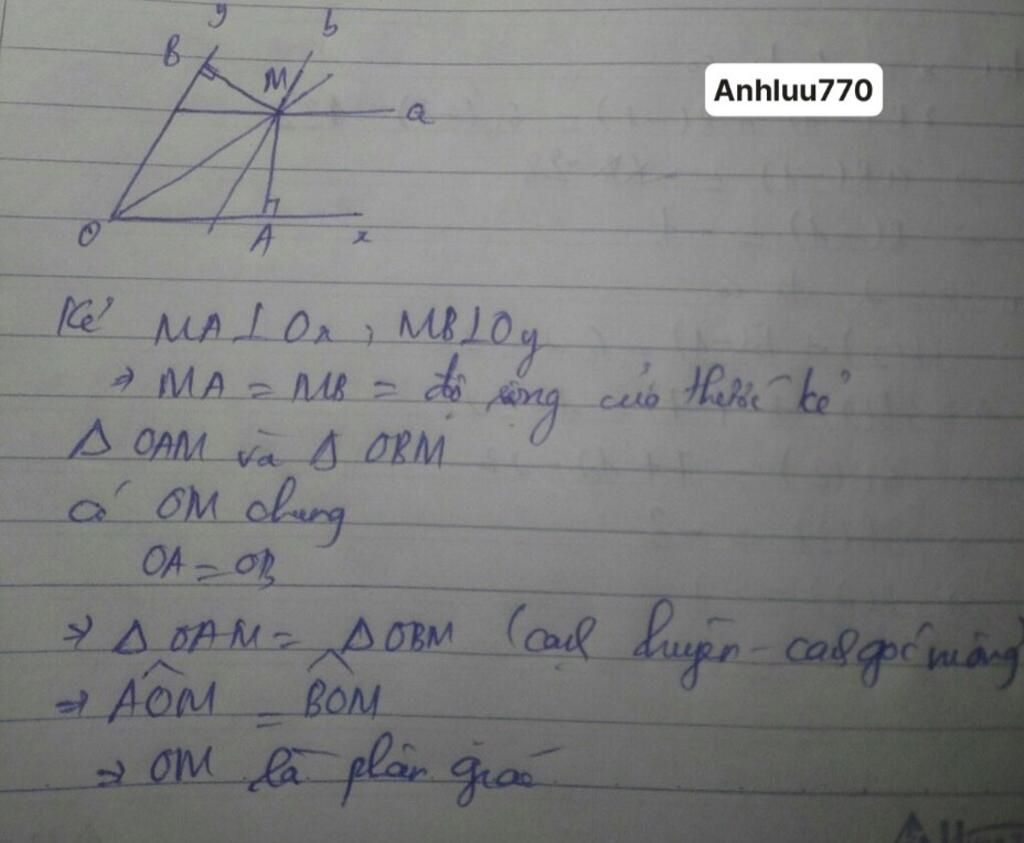 y
b
B
M
Anhluu770
a
O
A
x
Kẻ MA ⊥ Ox, MB ⊥ Oy
⇒ MA = MB = độ rộng của thước kẻ
Δ OAM và Δ OBM
có OM chung
OA = OB
⇒ Δ OAM = Δ OBM (cạnh huyền - cạnh góc vuông)
⇒ AÔM = BÔM
⇒ OM là phân giác